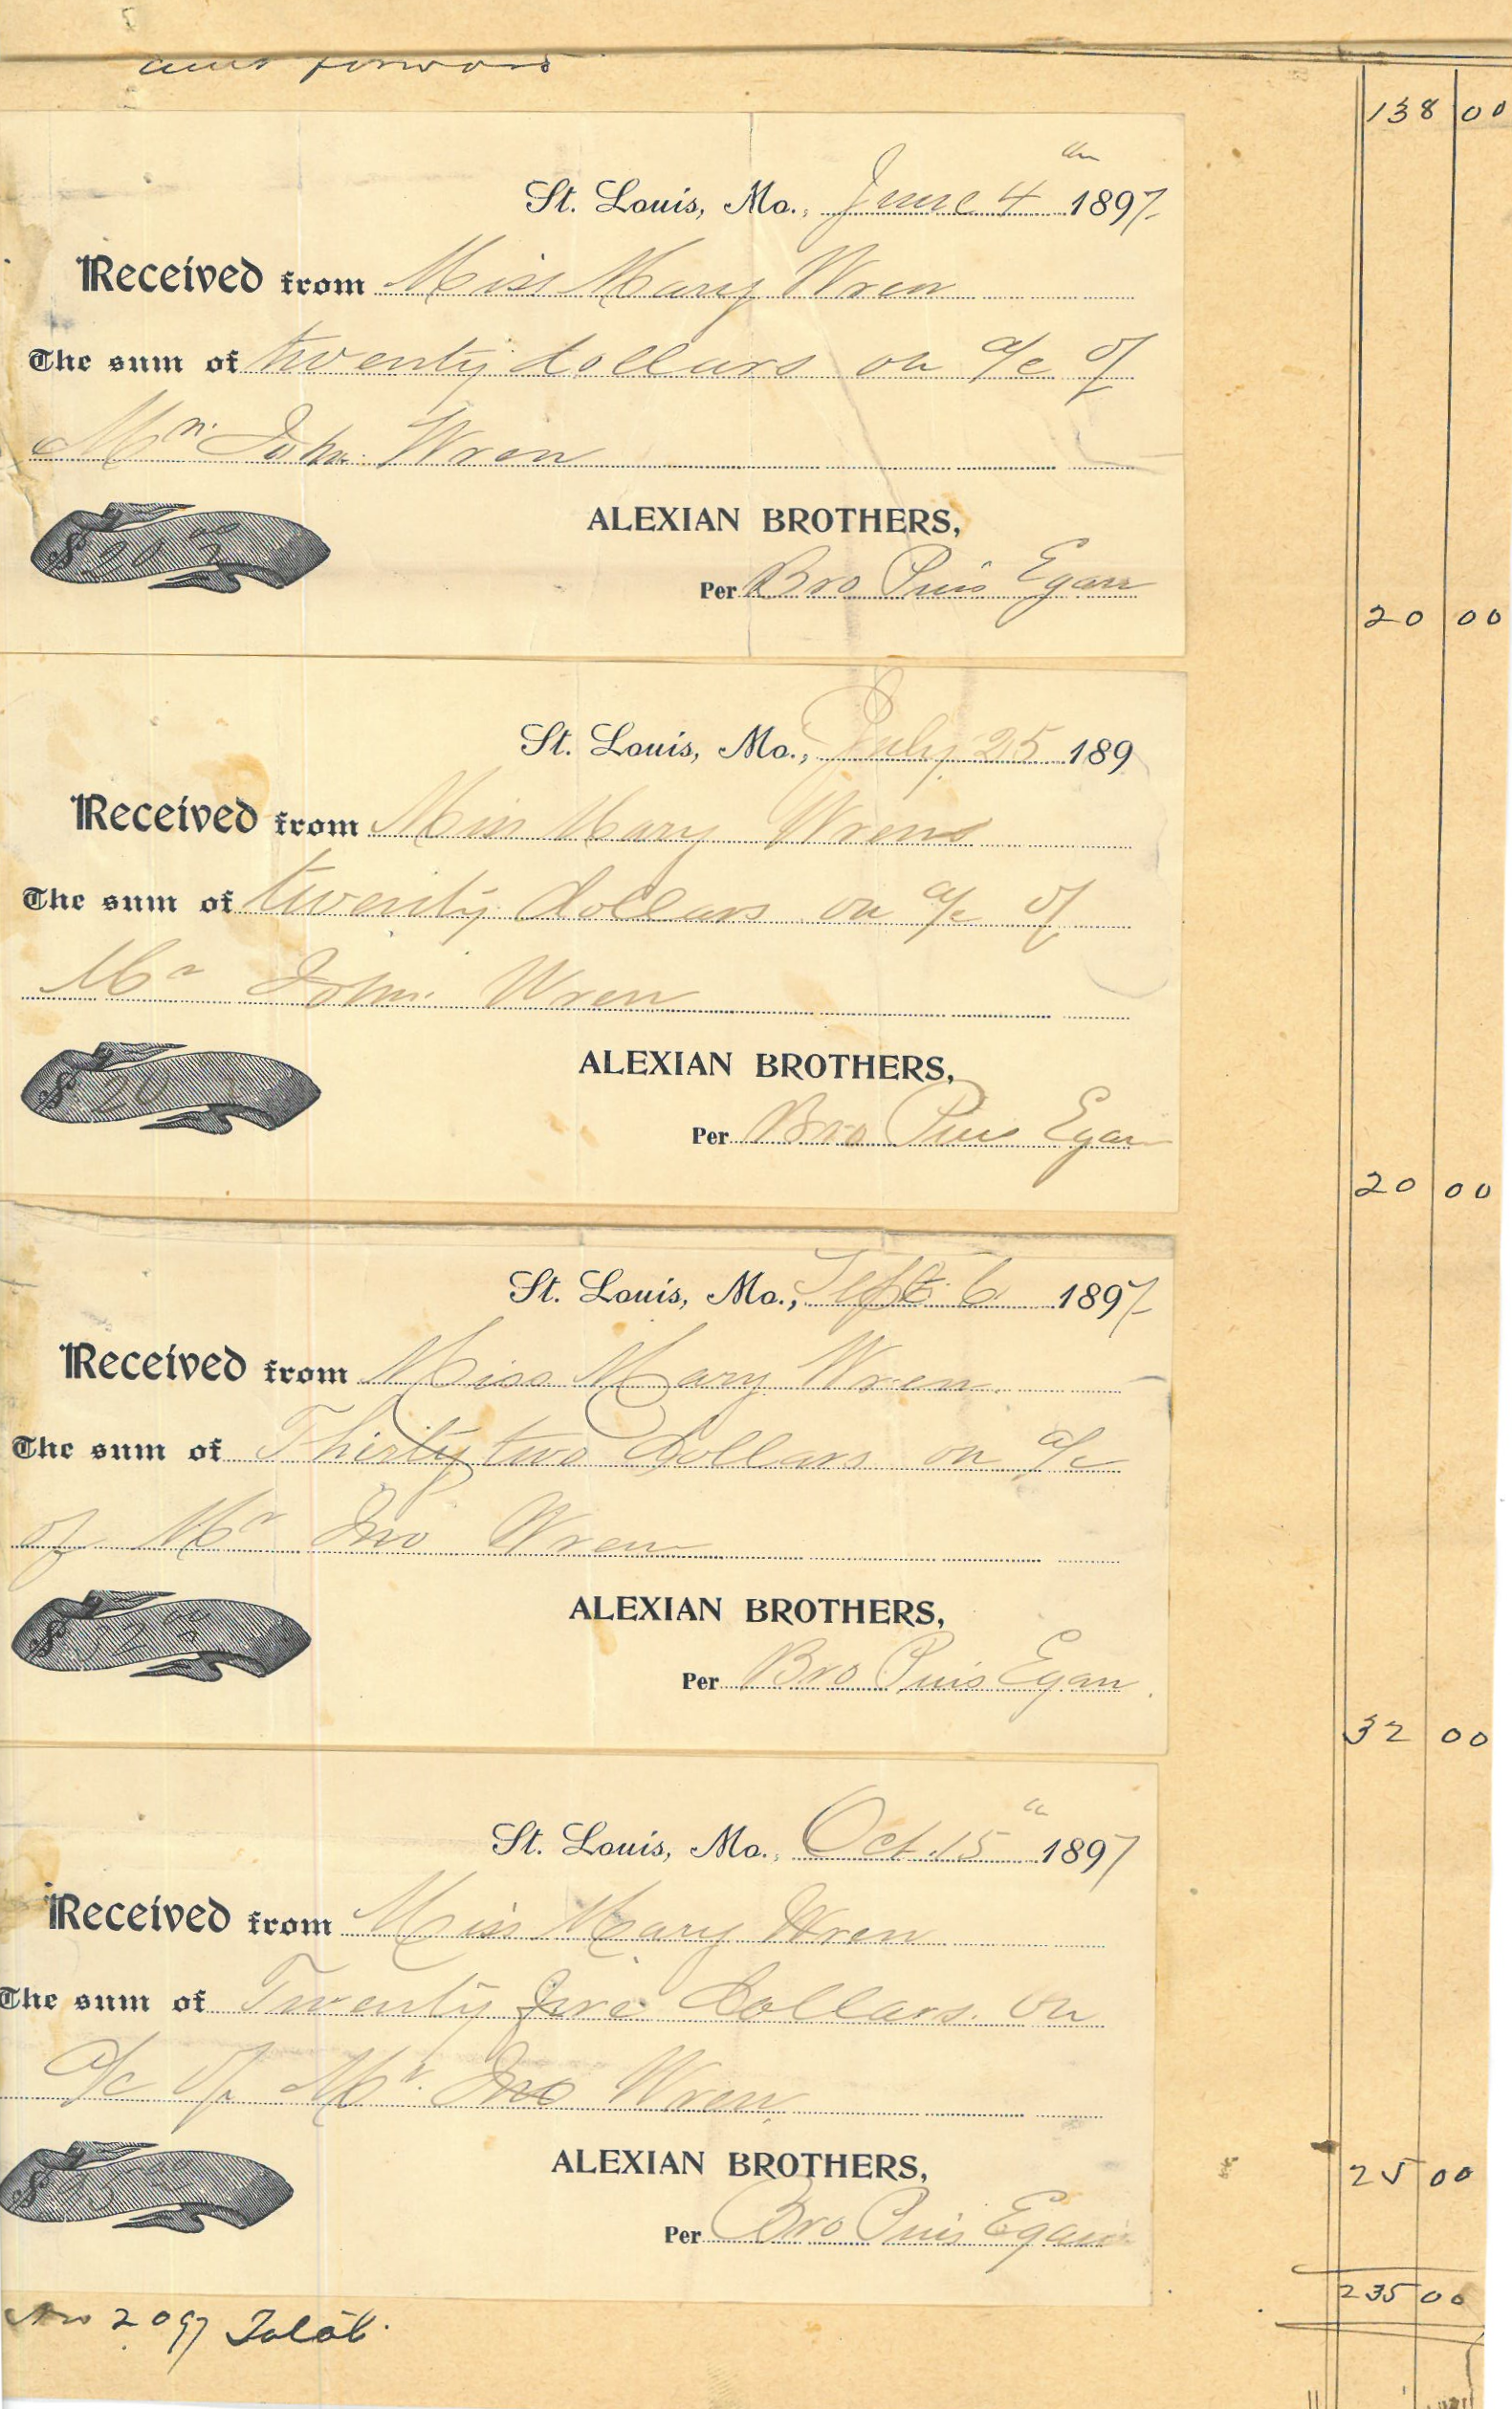 amt forward
138 00
St. Louis, Mo., June 4th 1897
Received from Miss Mary Wren
The sum of twenty dollars on a/c of
Mr. John Wren
$20 00
ALEXIAN BROTHERS,
Per Bro Pius Egan
20 00
St. Louis, Mo., July 25 189
Received from Miss Mary Wrens
The sum of twenty dollars on a/c of
Mr John Wren
$20
ALEXIAN BROTHERS,
Per Bro Pius Egan
20 00
St. Louis, Mo., Sept. 6 1897
Received from Miss Mary Wren.
The sum of Thirty two Dollars on a/c
of Mr Jno Wren
$32 00
ALEXIAN BROTHERS,
Per Bro Pius Egan.
32 00
St. Louis, Mo., Oct. 15th 1897
Received from Miss Mary Wren
The sum of Twenty five Dollars. on
a/c of Mr. Jno Wren.
$25 00
ALEXIAN BROTHERS,
Per Bro Pius Egan
25 00
235 00
Nov 2 97 Total.